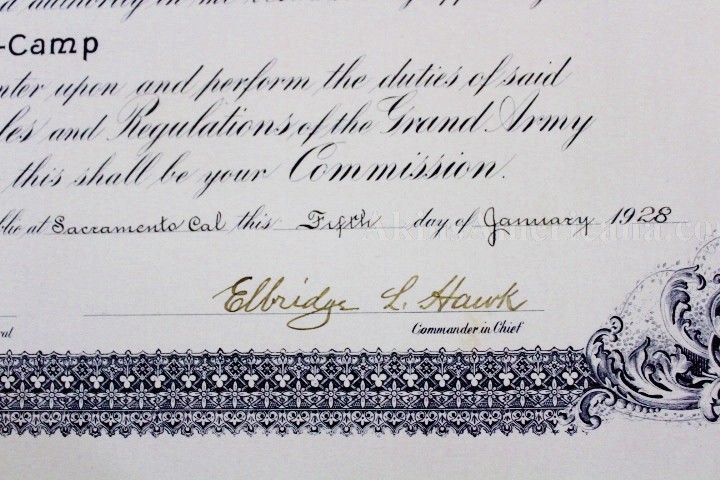 authority in the
-Camp
nter upon and perform the duties of said
les and Regulations of the Grand Army
this shall be your Commission.
blic at Sacramento Cal this Fifth day of January 1928
Elbridge L. Hawk
ral Commander in Chief